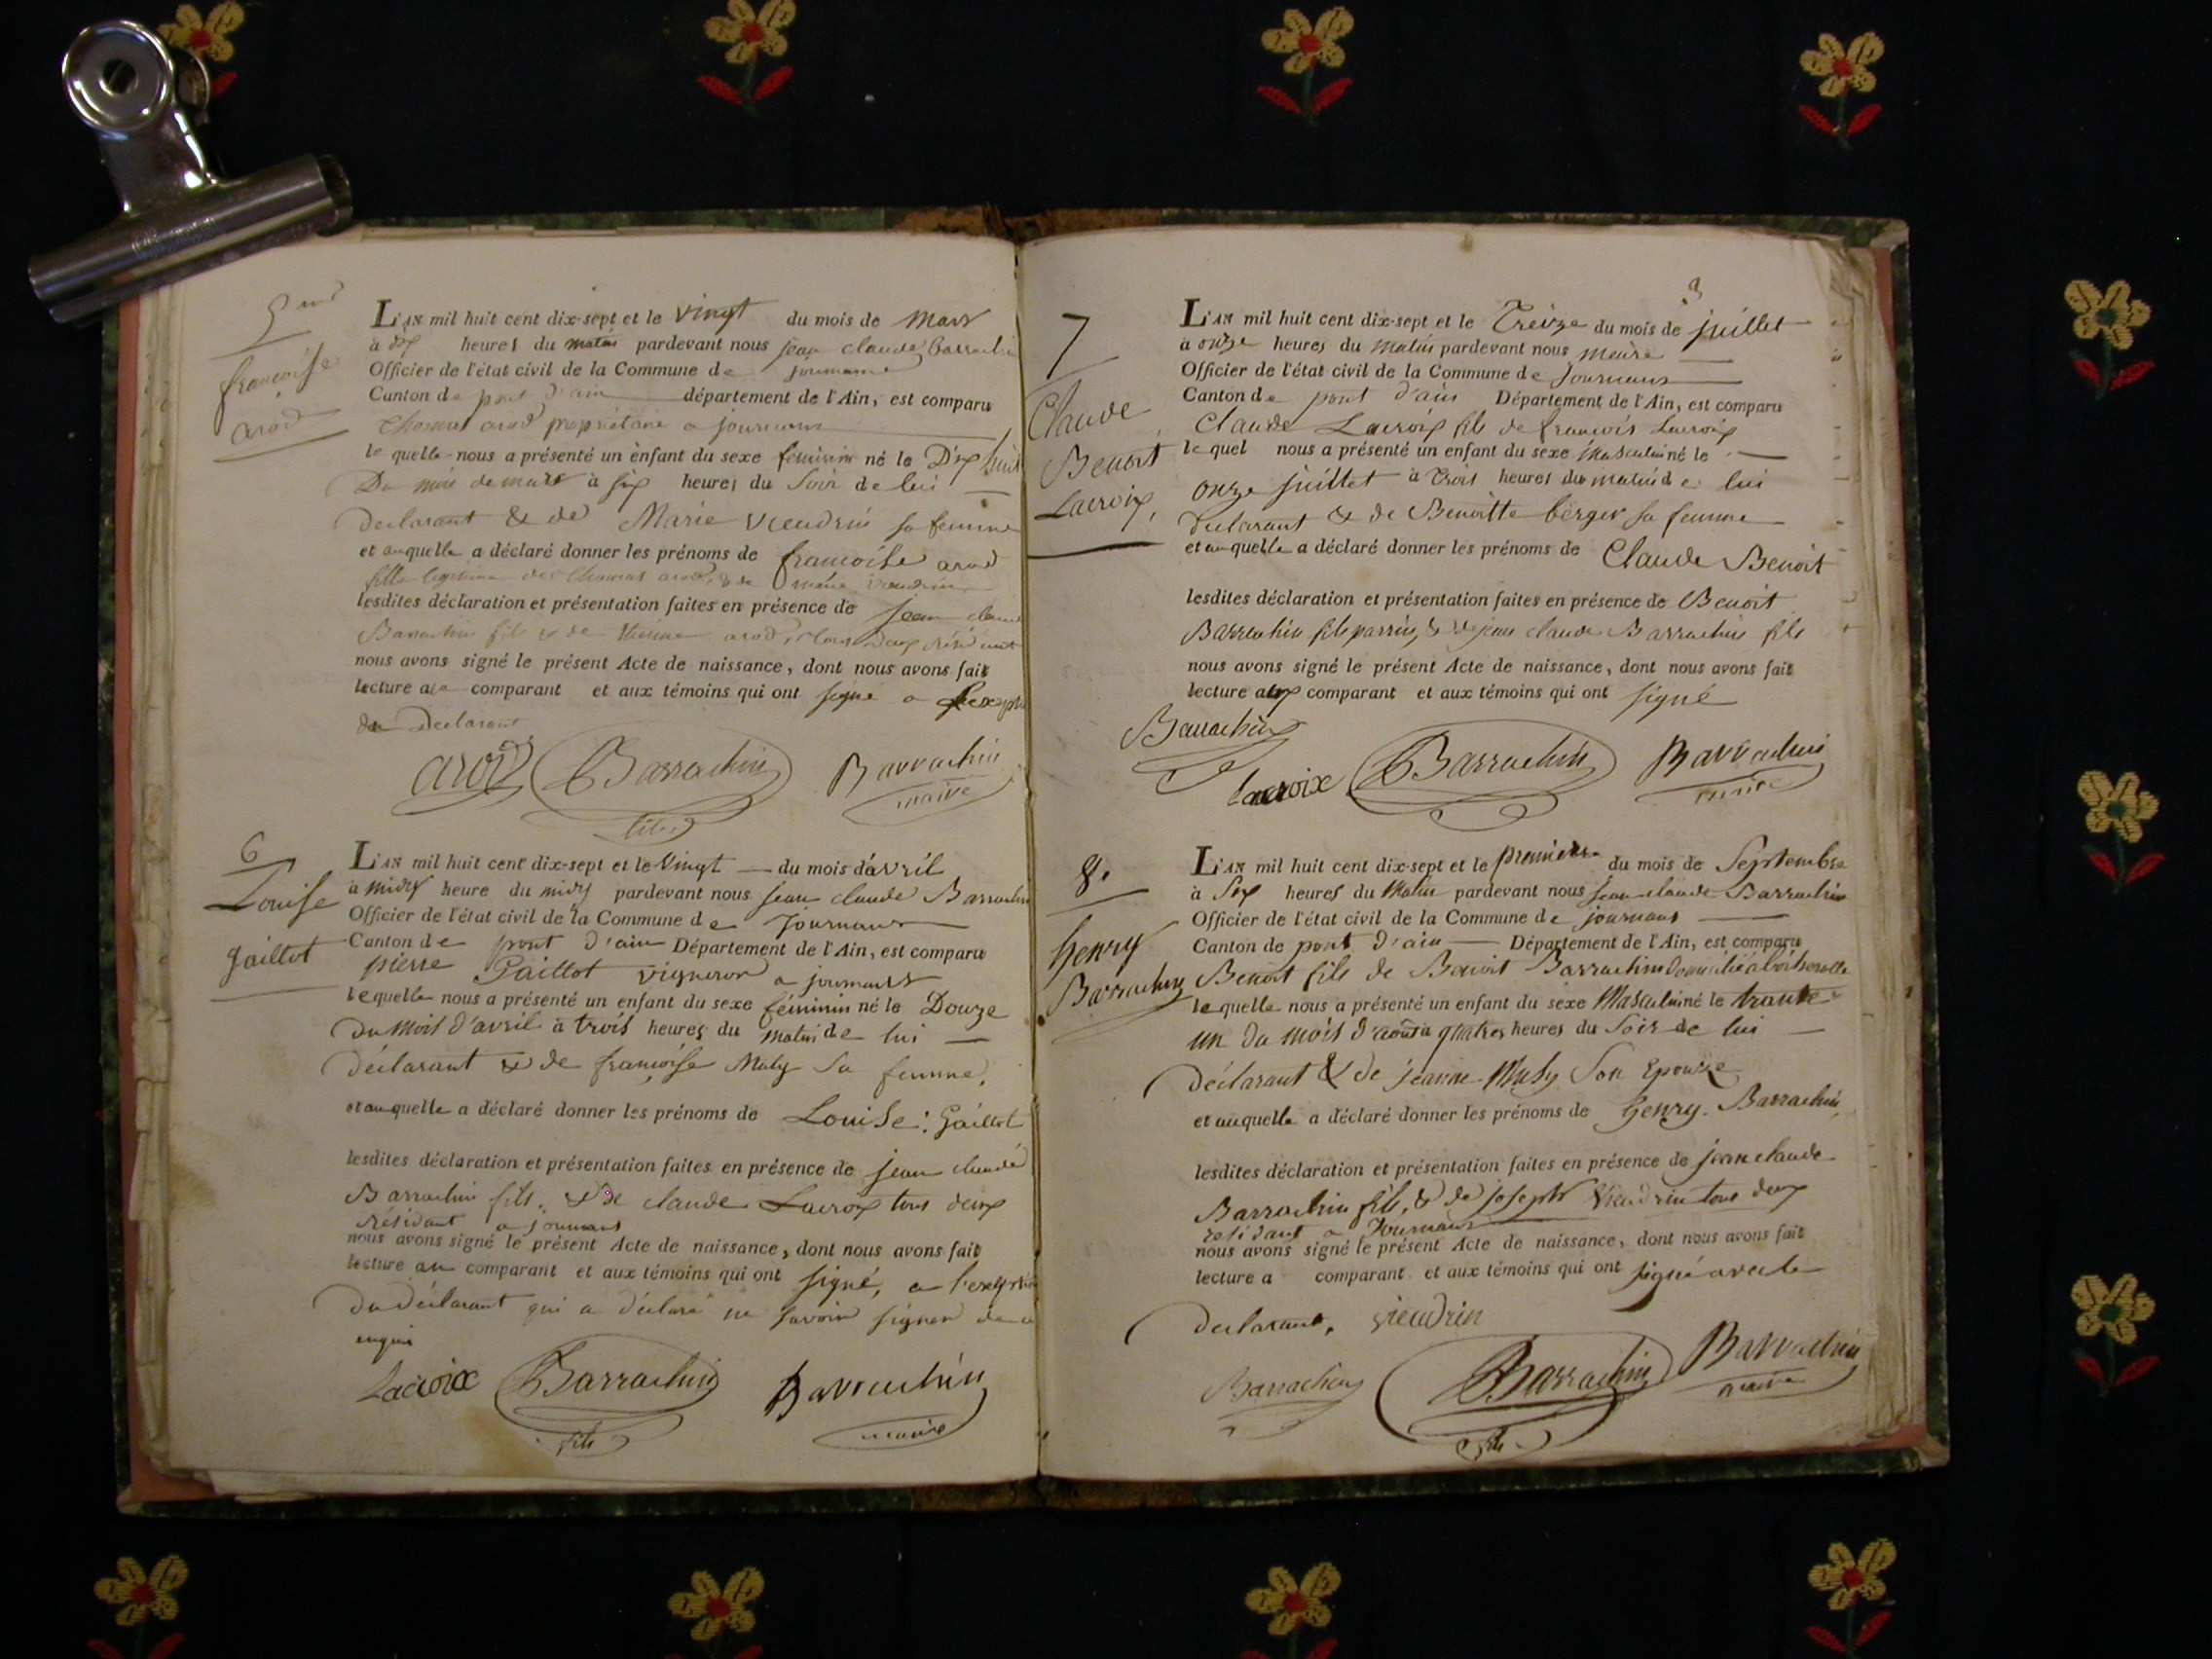 5
françoise
arod
L'AN mil huit cent dix-sept et le vingt du mois de mars
à dix heures du matin pardevant nous jean claude barrachin
Officier de l'état civil de la Commune de journans
Canton de pont d'ain département de l'Ain, est comparu
Thomas arod propriétaire a journans
le quelle nous a présenté un enfant du sexe feminin né le Dix huit
Du mois de mars à six heures du Soir de lui
declarant & de Marie vieudrin sa femme
et auquelle a déclaré donner les prénoms de françoise arod
fille legitime de Thomas arod, & de marie vieudrin
lesdites déclaration et présentation faites en présence de jean claude
Barrachin fils & de arod, tous deux résidant
nous avons signé le présent Acte de naissance, dont nous avons fait
lecture au comparant et aux témoins qui ont signé a
du declarant
arod Barrachin fils Barrachin maire
6
Louise
gaillot
L'AN mil huit cent dix-sept et le vingt du mois d'avril
à midy heure du midy pardevant nous jean claude Barrachin
Officier de l'état civil de la Commune de Journans
Canton de pont d'ain Département de l'Ain, est comparu
pierre Gaillot vigneron a journans
lequelle nous a présenté un enfant du sexe féminin né le Douze
du mois d'avril à trois heures du matin de lui
déclarant & de françoise Maby sa femme,
et auquelle a déclaré donner les prénoms de Louise: Gaillot
lesdites déclaration et présentation faites en présence de jean claude
Barrachin fils. & de claude Lacroix tous deux
résidant a journans
nous avons signé le présent Acte de naissance, dont nous avons fait
lecture au comparant et aux témoins qui ont signé, a l'exeption
du déclarant qui a déclaré ne savoir signer de ce
enquis
Lacroix Barrachin fils Barrachin maire
3
7
Claude
Benoit
Lacroix,
L'AN mil huit cent dix-sept et le Treize du mois de juillet
à onze heures du matin pardevant nous maire
Officier de l'état civil de la Commune de Journans
Canton de pont d'ain Département de l'Ain, est comparu
Claude Lacroix fils de françois Lacroix
le quel nous a présenté un enfant du sexe Masculin né le
onze juillet à trois heures du matin de lui
declarant & de Benoitte berger sa femme
et auquelle a déclaré donner les prénoms de Claude Benoit
lesdites déclaration et présentation faites en présence de Benoit
Barrachin fils parrin, & de jean claude Barrachin fils
nous avons signé le présent Acte de naissance, dont nous avons fait
lecture aux comparant et aux témoins qui ont signé
Barrachin
Lacroix Barrachin Barrachin maire
8.
henry
Barrachin
L'AN mil huit cent dix-sept et le premier du mois de Septembre
à Six heures du Matin pardevant nous jean claude Barrachin
Officier de l'état civil de la Commune de journans
Canton de pont d'ain Département de l'Ain, est comparu
Benoit fils de Benoit Barrachin domicilié a
le quelle nous a présenté un enfant du sexe Masculin né le trante
un du mois d'aout à quatres heures du Soir de lui
déclarant & de jeanne Maby Son Epouse
et auquelle a déclaré donner les prénoms de henry. Barrachin,
lesdites déclaration et présentation faites en présence de jean claude
Barrachin fils, & de joseph vieudrin tous deux
residant a Journans
nous avons signé le présent Acte de naissance, dont nous avons fait
lecture a comparant et aux témoins qui ont signé avec le
declarant, vieudrin
Barrachin Barrachin fils Barrachin maire